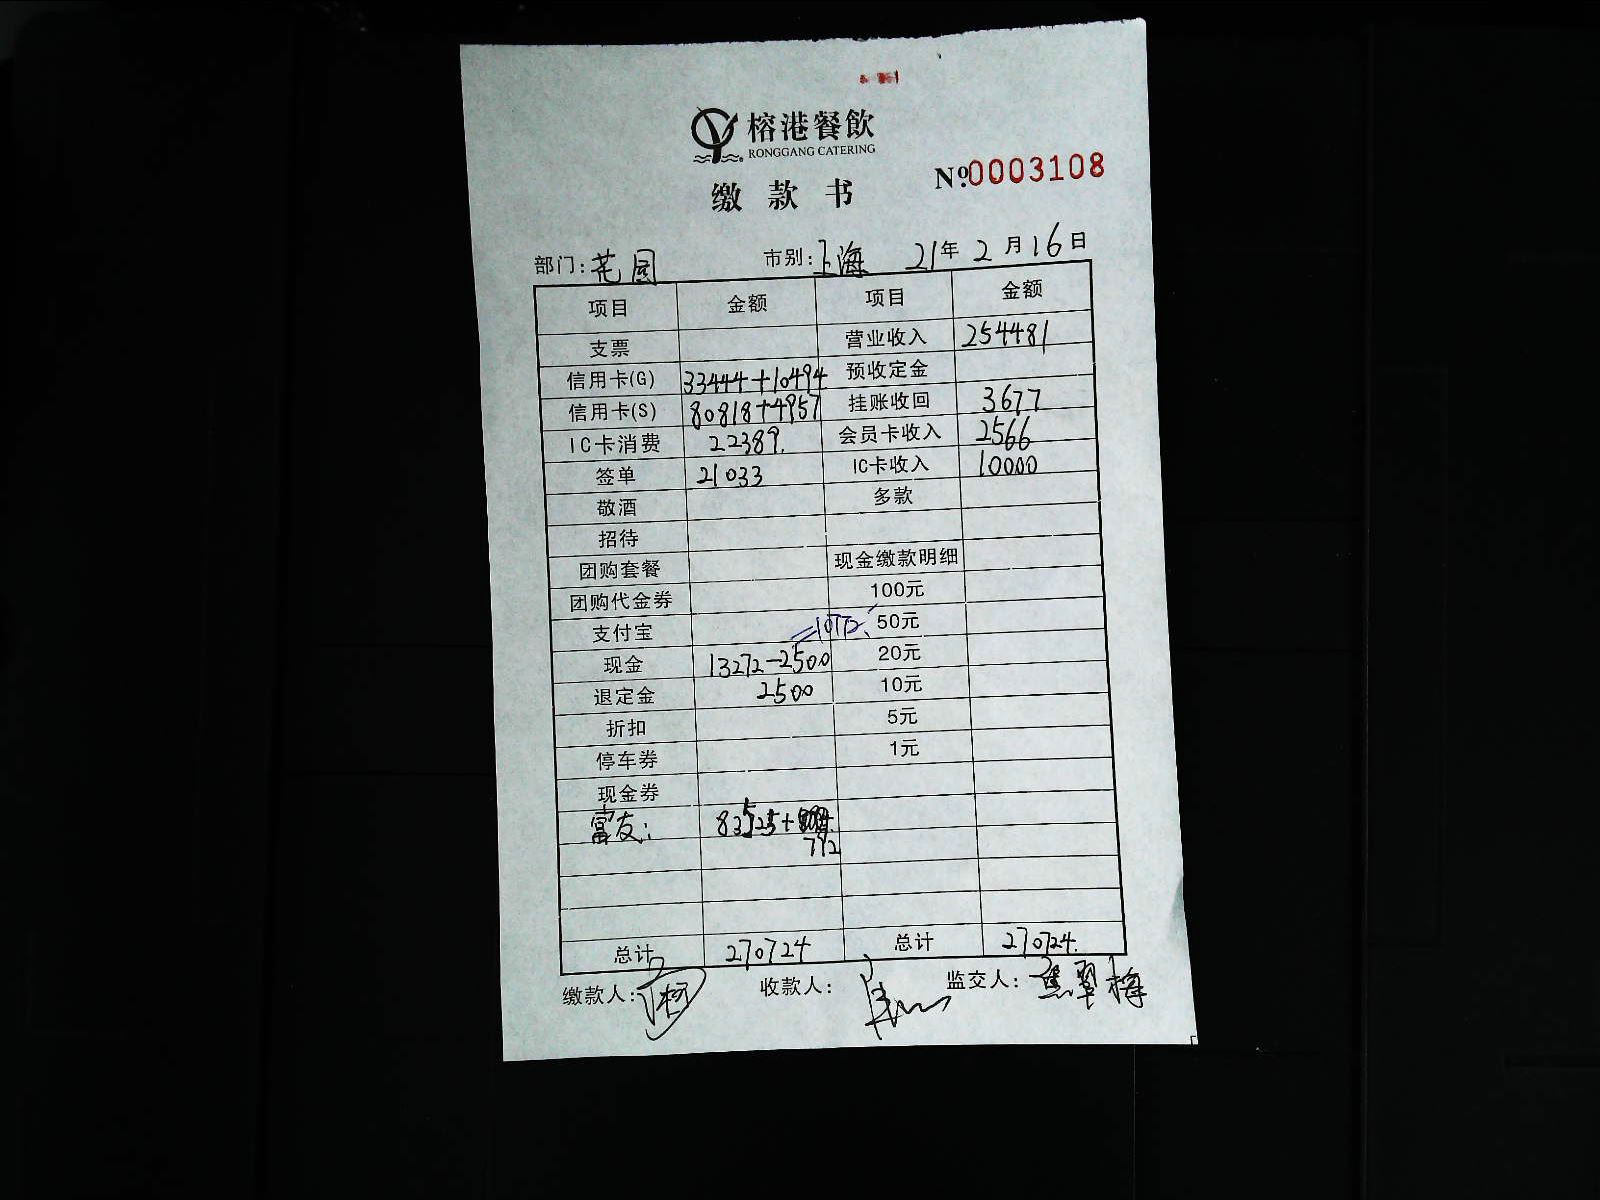 榕港餐飲
RONGGANG CATERING
缴款书
Nº0003108
部门:花园 市别:上海 21年2月16日
项目 金额 项目 金额
支票 营业收入 254481
信用卡(G) 33444+10494 预收定金
信用卡(S) 80818+4957 挂账收回 3677
IC卡消费 22389. 会员卡收入 2566
签单 21033 IC卡收入 10000
敬酒 多款
招待
团购套餐 现金缴款明细
团购代金券 100元
支付宝 =10772 50元
现金 13272-2500 20元
退定金 2500 10元
折扣 5元
停车券 1元
现金券
富友: 83525+
792
总计 270724 总计 270724.
缴款人: 收款人: 监交人: